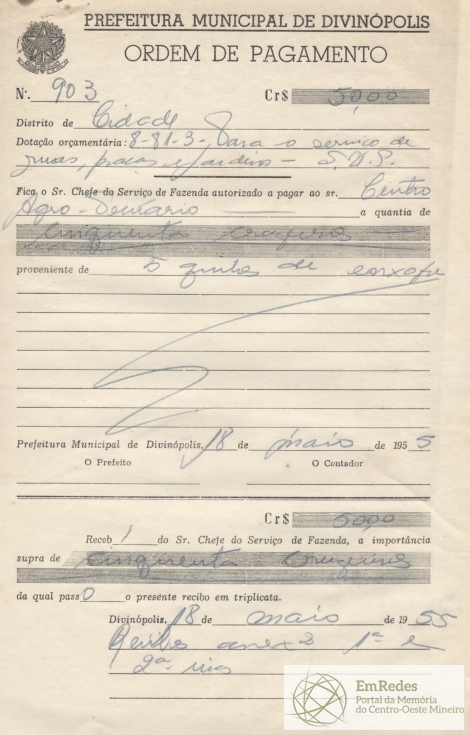 PREFEITURA MUNICIPAL DE DIVINÓPOLIS
ORDEM DE PAGAMENTO
N.º 903 Cr$ 50,00
Distrito de Cidade
Dotação orçamentária: 8-81-3- Para o serviço de
ruas, praças e jardins - S.V.P.
Fica o Sr. Chefe do Serviço de Fazenda autorizado a pagar ao sr. Centro
Agro- a quantia de
cinquenta cruzeiros
proveniente de 5 de
Prefeitura Municipal de Divinópolis, 18 de maio de 1955
O Prefeito O Contador
Cr$ 50,00
Receb i do Sr. Chefe do Serviço de Fazenda, a importância
supra de cinquenta cruzeiros
da qual passo o presente recibo em triplicata.
Divinópolis, 18 de maio de 1955
1ª e
2ª vias
EmRedes
Portal da Memória
do Centro-Oeste Mineiro